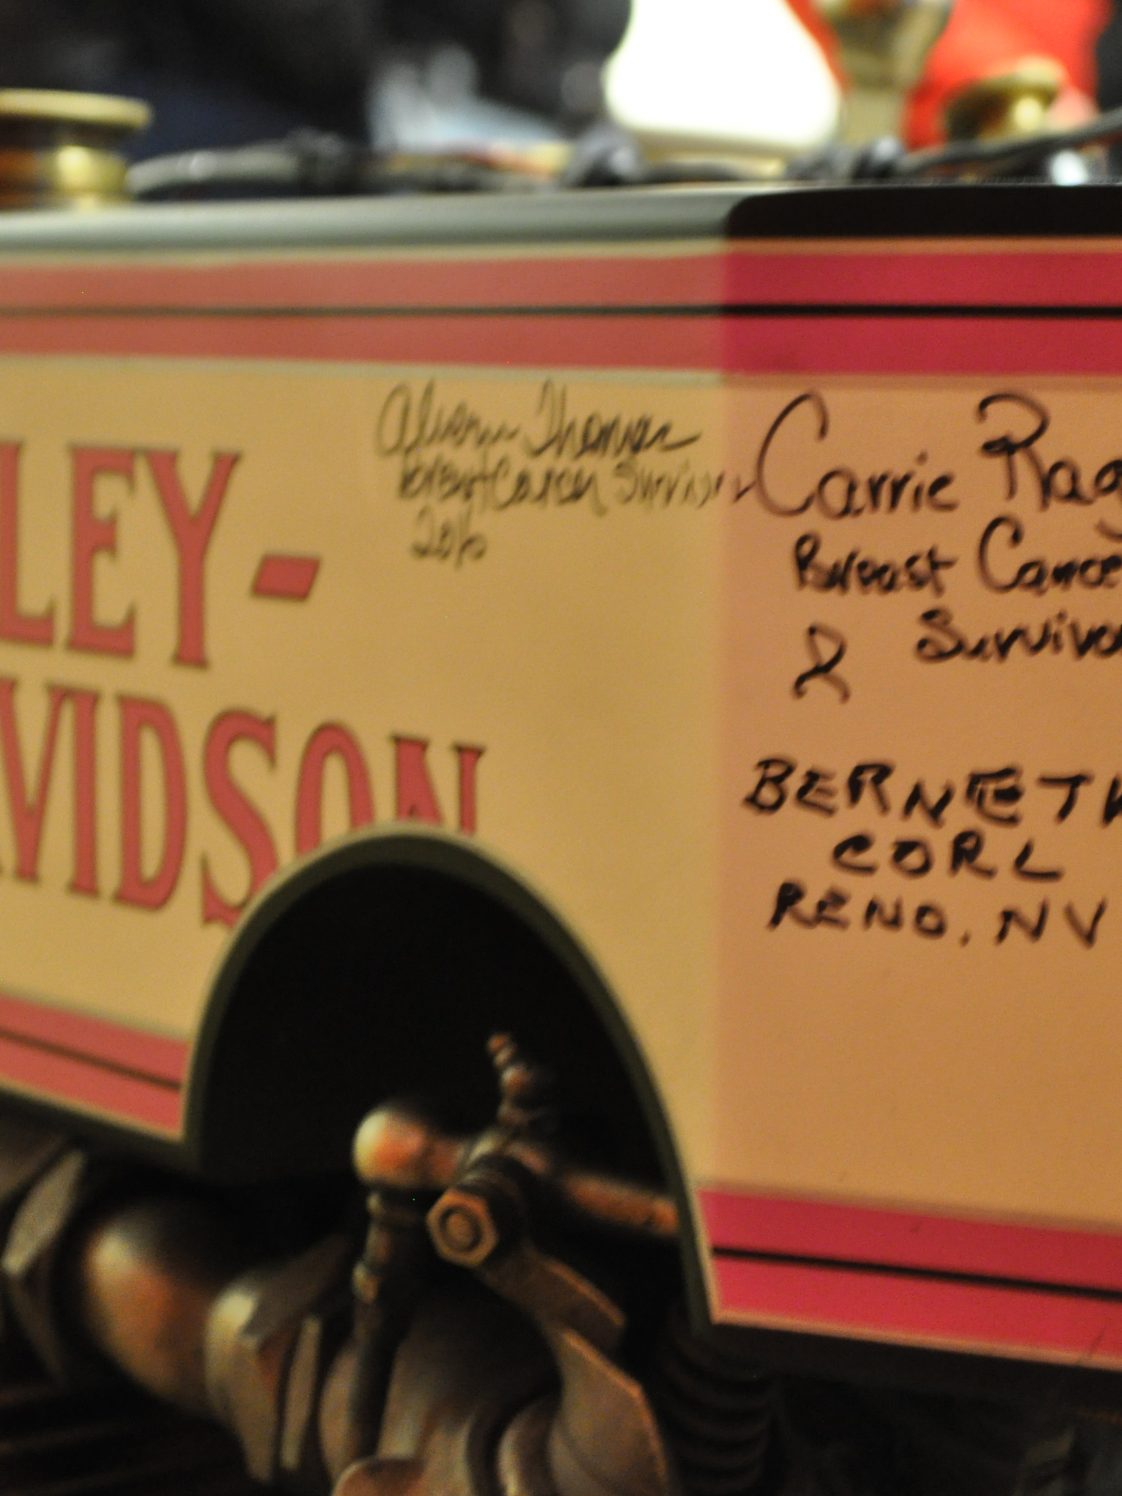 LEY-
VIDSON
Thomas
Breast Cancer Survivor
2016
Carrie Rag
Breast Cance
Survivo
BERNETH
CORL
RENO, NV